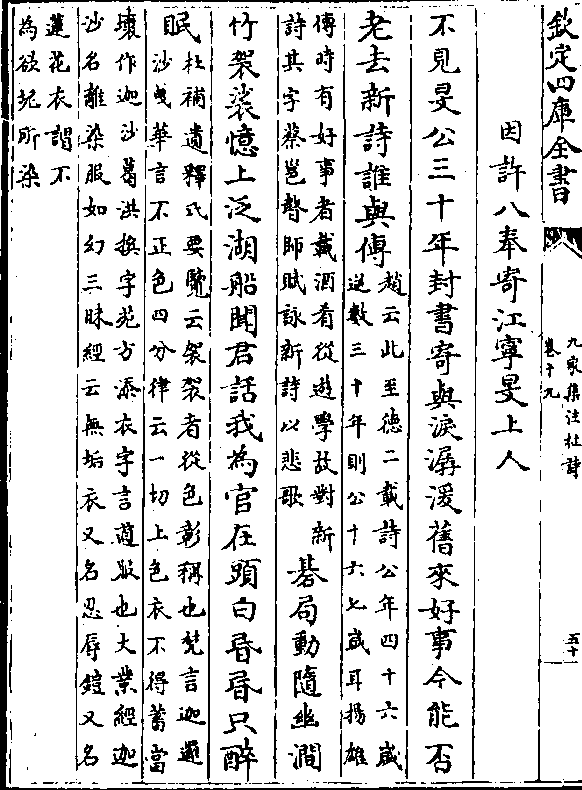 欽定四庫全書
九家集注杜詩
卷十九
五十
因許八奉寄江寧旻上人
不見旻公三十年封書寄與淚潺湲舊來好事今能否
老去新詩誰與傳
趙云此至德二載詩公年四十六歲
逆數三十年則公十六七歲耳揚雄
傳時有好事者載酒肴從遊學故對新
詩其字蔡邕瞽師賦詠新詩以悲歌
棊局動隨幽澗
竹袈裟憶上泛湖船聞君話我為官在頭白昬昬只醉
眠
杜補遺釋氏要覽云袈裟者從色彰稱也梵言迦邏
沙曳華言不正色四分律云一切上色衣不得蓄當
壞作迦沙葛洪撰字苑方添衣字言道服也大業經迦
沙名離染服如幻三昧經云無垢衣又名忍辱鎧又名
蓮花衣謂不
為欲泥所染